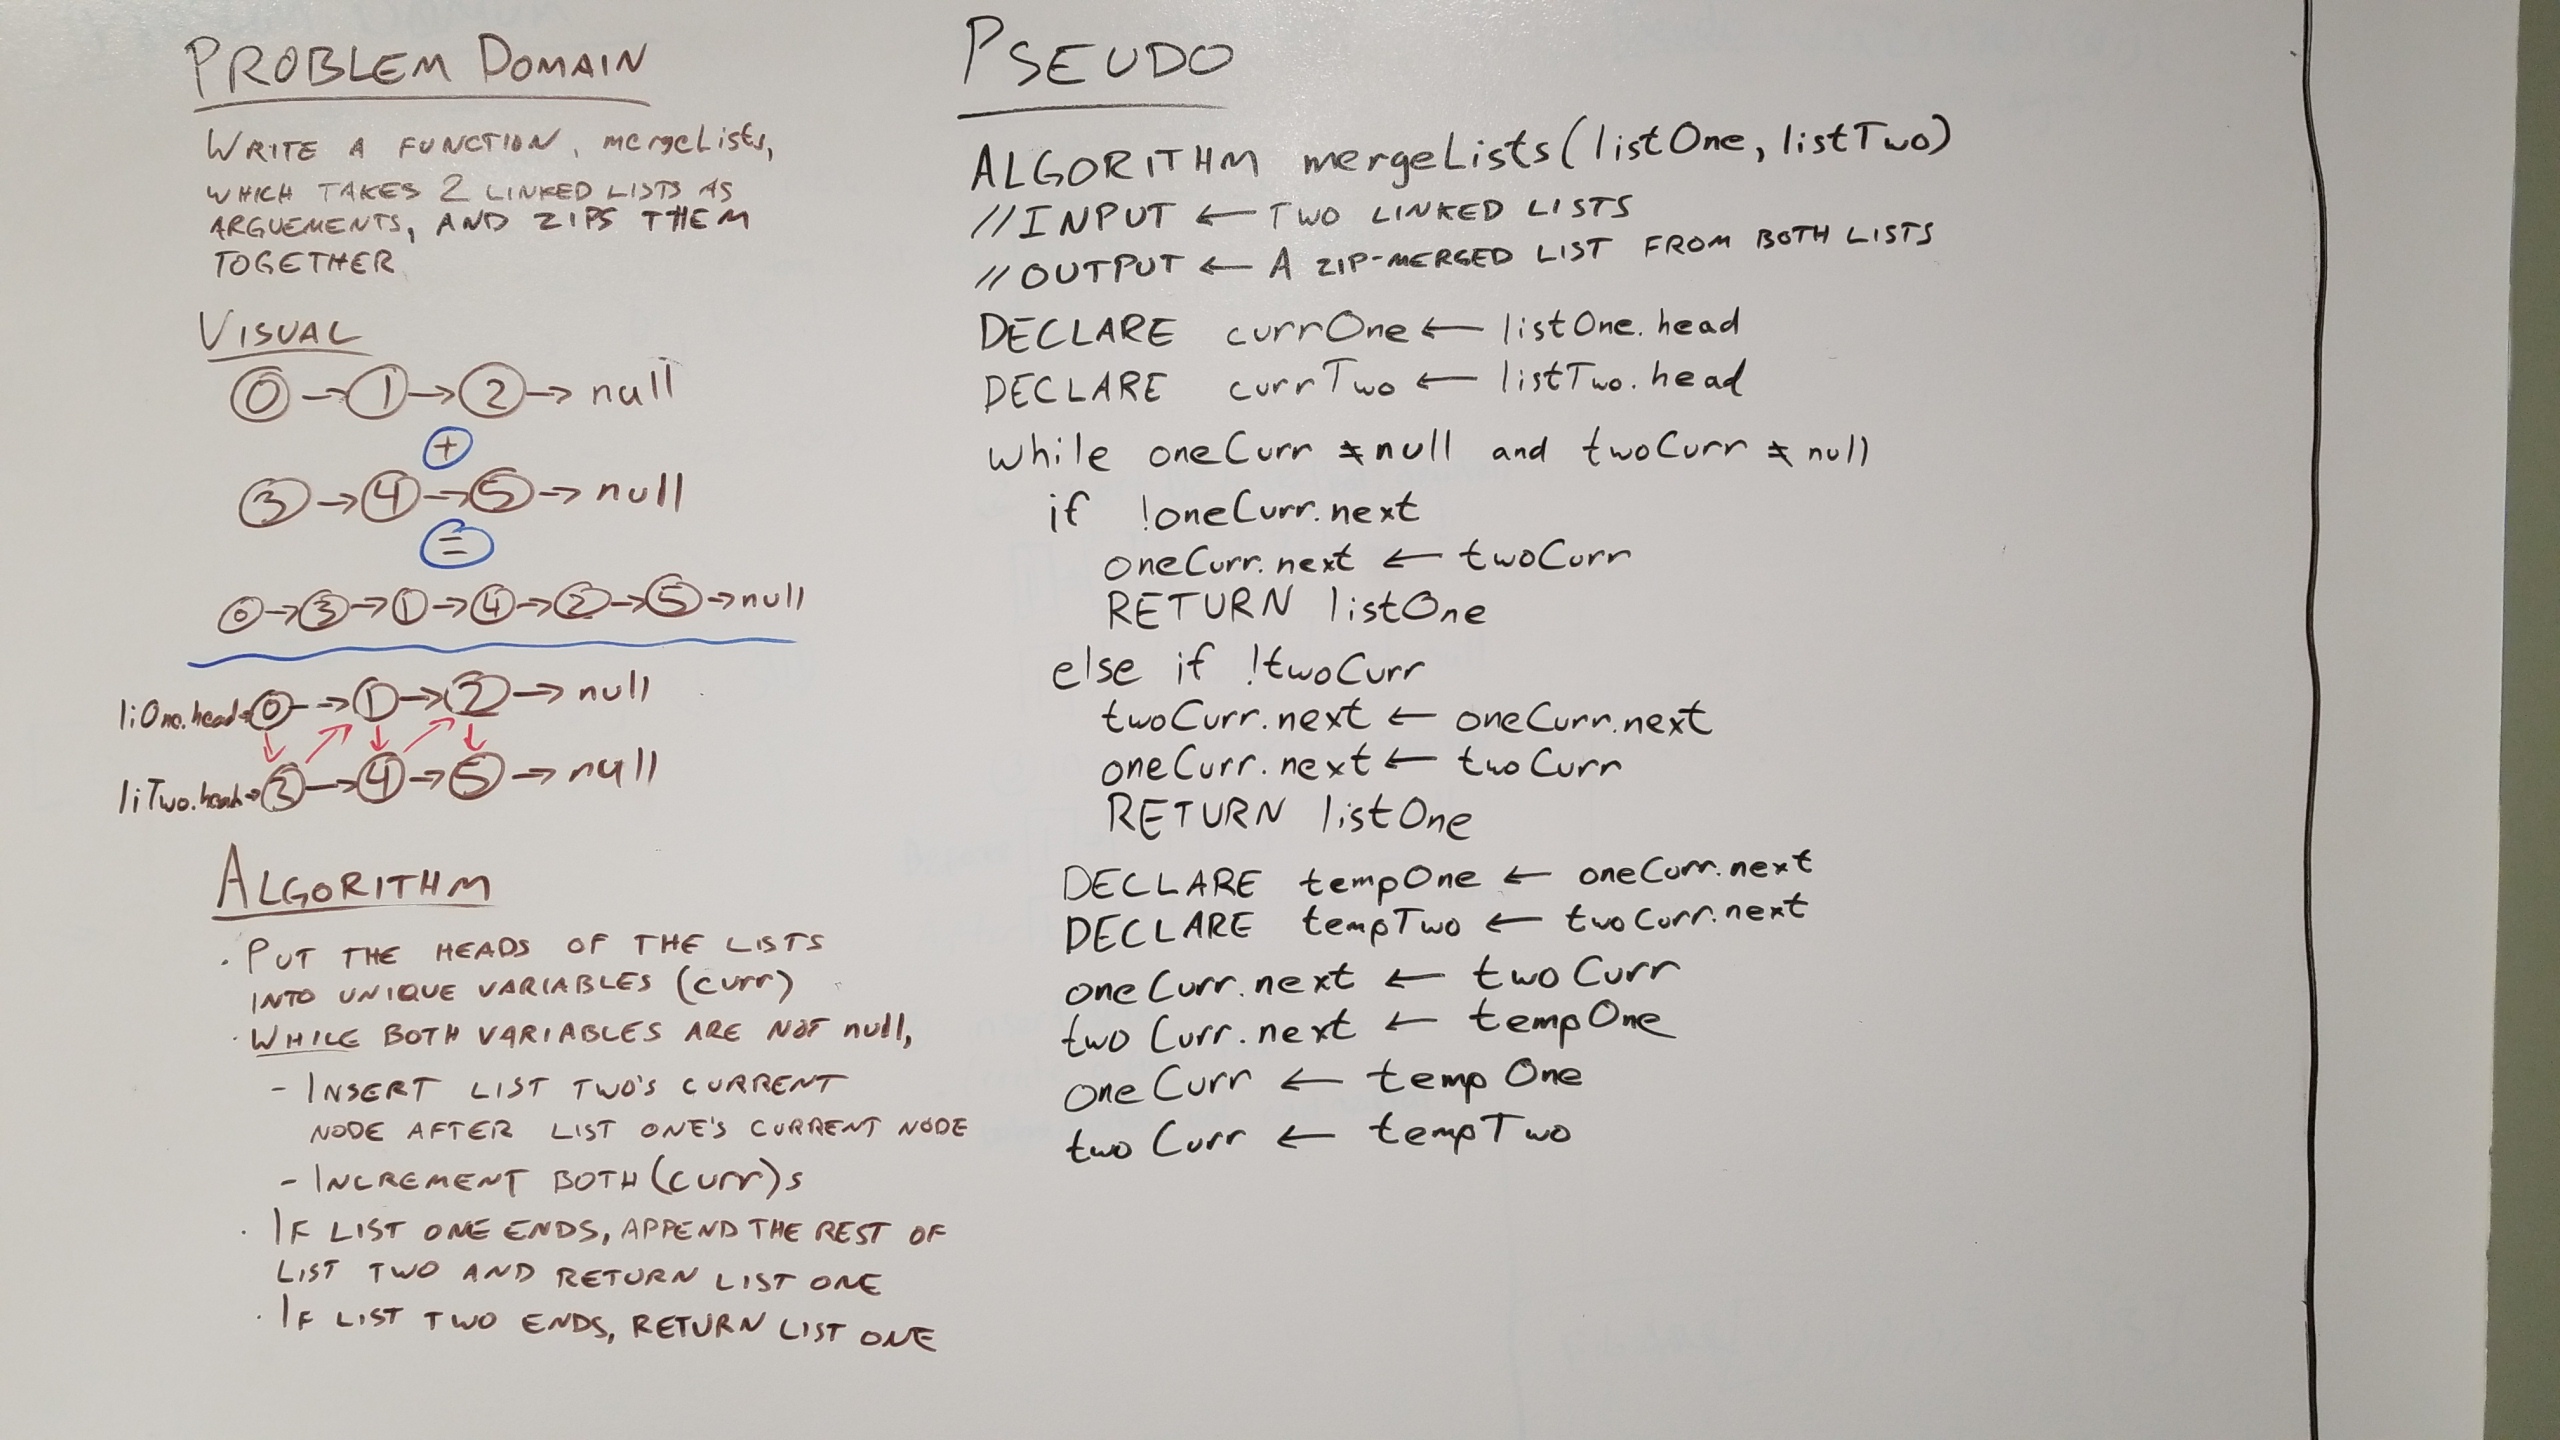 PROBLEM DOMAIN
WRITE A FUNCTION, mergeLists,
WHICH TAKES 2 LINKED LISTS AS
ARGUEMENTS, AND ZIPS THEM
TOGETHER
VISUAL
0 → 1 → 2 → null
+
3 → 4 → 5 → null
=
0 → 3 → 1 → 4 → 2 → 5 → null
liOne.head → 0 → 1 → 2 → null
liTwo.head → 3 → 4 → 5 → null
ALGORITHM
· PUT THE HEADS OF THE LISTS
INTO UNIQUE VARIABLES (curr)
· WHILE BOTH VARIABLES ARE NOT null,
- INSERT LIST TWO'S CURRENT
NODE AFTER LIST ONE'S CURRENT NODE
- INCREMENT BOTH (curr)s
· IF LIST ONE ENDS, APPEND THE REST OF
LIST TWO AND RETURN LIST ONE
· IF LIST TWO ENDS, RETURN LIST ONE
PSEUDO
ALGORITHM mergeLists(listOne, listTwo)
//INPUT ← TWO LINKED LISTS
//OUTPUT ← A ZIP-MERGED LIST FROM BOTH LISTS
DECLARE currOne ← listOne.head
DECLARE currTwo ← listTwo.head
while oneCurr ≠ null and twoCurr ≠ null
if !oneCurr.next
oneCurr.next ← twoCurr
RETURN listOne
else if !twoCurr
twoCurr.next ← oneCurr.next
oneCurr.next ← twoCurr
RETURN listOne
DECLARE tempOne ← oneCurr.next
DECLARE tempTwo ← twoCurr.next
oneCurr.next ← twoCurr
twoCurr.next ← tempOne
oneCurr ← tempOne
twoCurr ← tempTwo